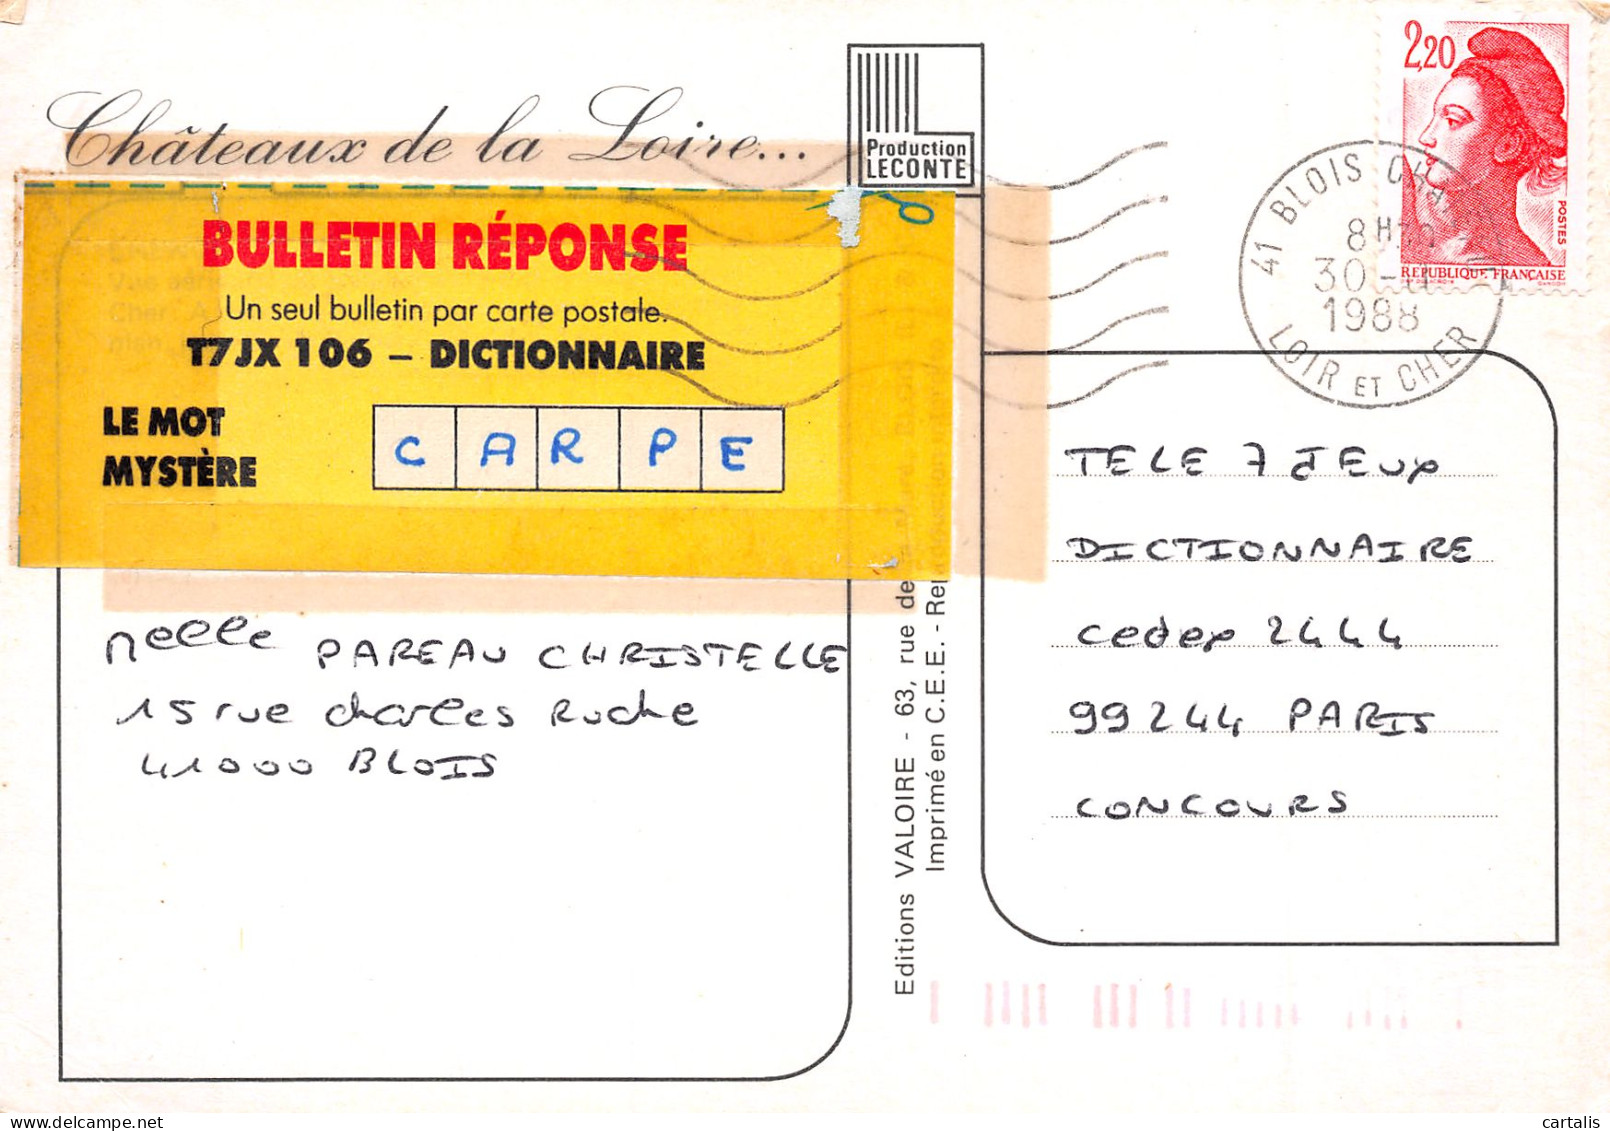 Châteaux de la Loire...
Production
LECONTE
2,20
POSTES
REPUBLIQUE FRANCAISE
41 BLOIS
8H
30
1988
LOIR ET CHER
BULLETIN RÉPONSE
Un seul bulletin par carte postale.
T7JX 106 – DICTIONNAIRE
LE MOT
MYSTÈRE
C A R P E
Melle PAREAU CHRISTELLE
15 rue charles Ruche
41000 BLOIS
Editions VALOIRE - 63, rue de
Imprimé en C.E.E. -
TELE 7 JEUX
DICTIONNAIRE
cedex 2444
99244 PARIS
CONCOURS
cartalis